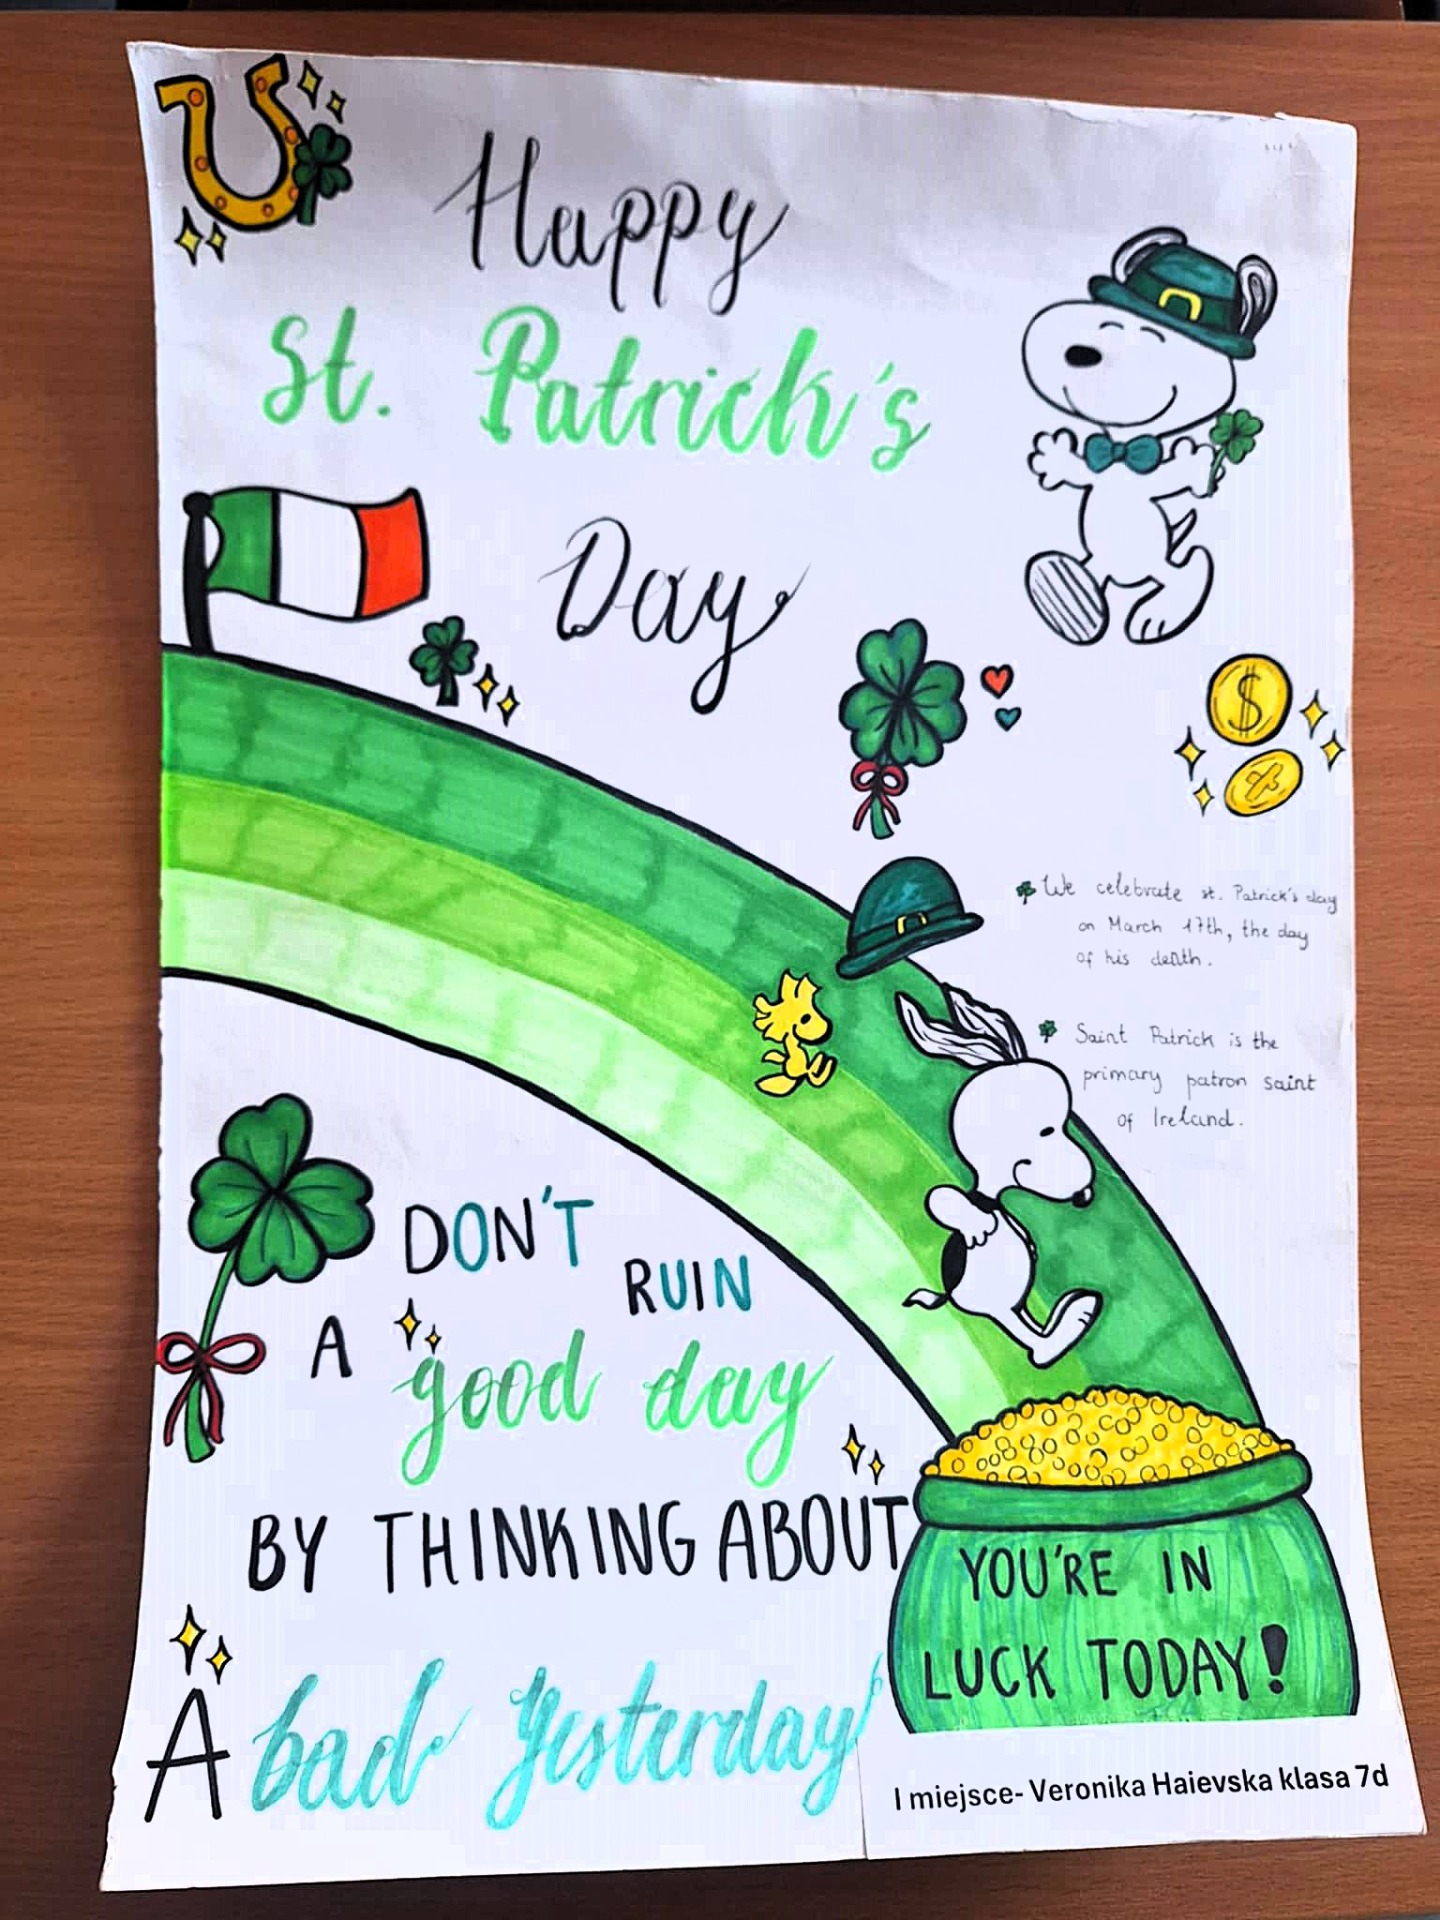 Happy
St. Patrick's
Day
$
We celebrate st. Patrick's day
on March 17th, the day
of his death.
Saint Patrick is the
primary patron saint
of Ireland.
DON'T
RUIN
A good day
BY THINKING ABOUT
A bad Yesterday
YOU'RE IN
LUCK TODAY!
I miejsce- Veronika Haievska klasa 7d